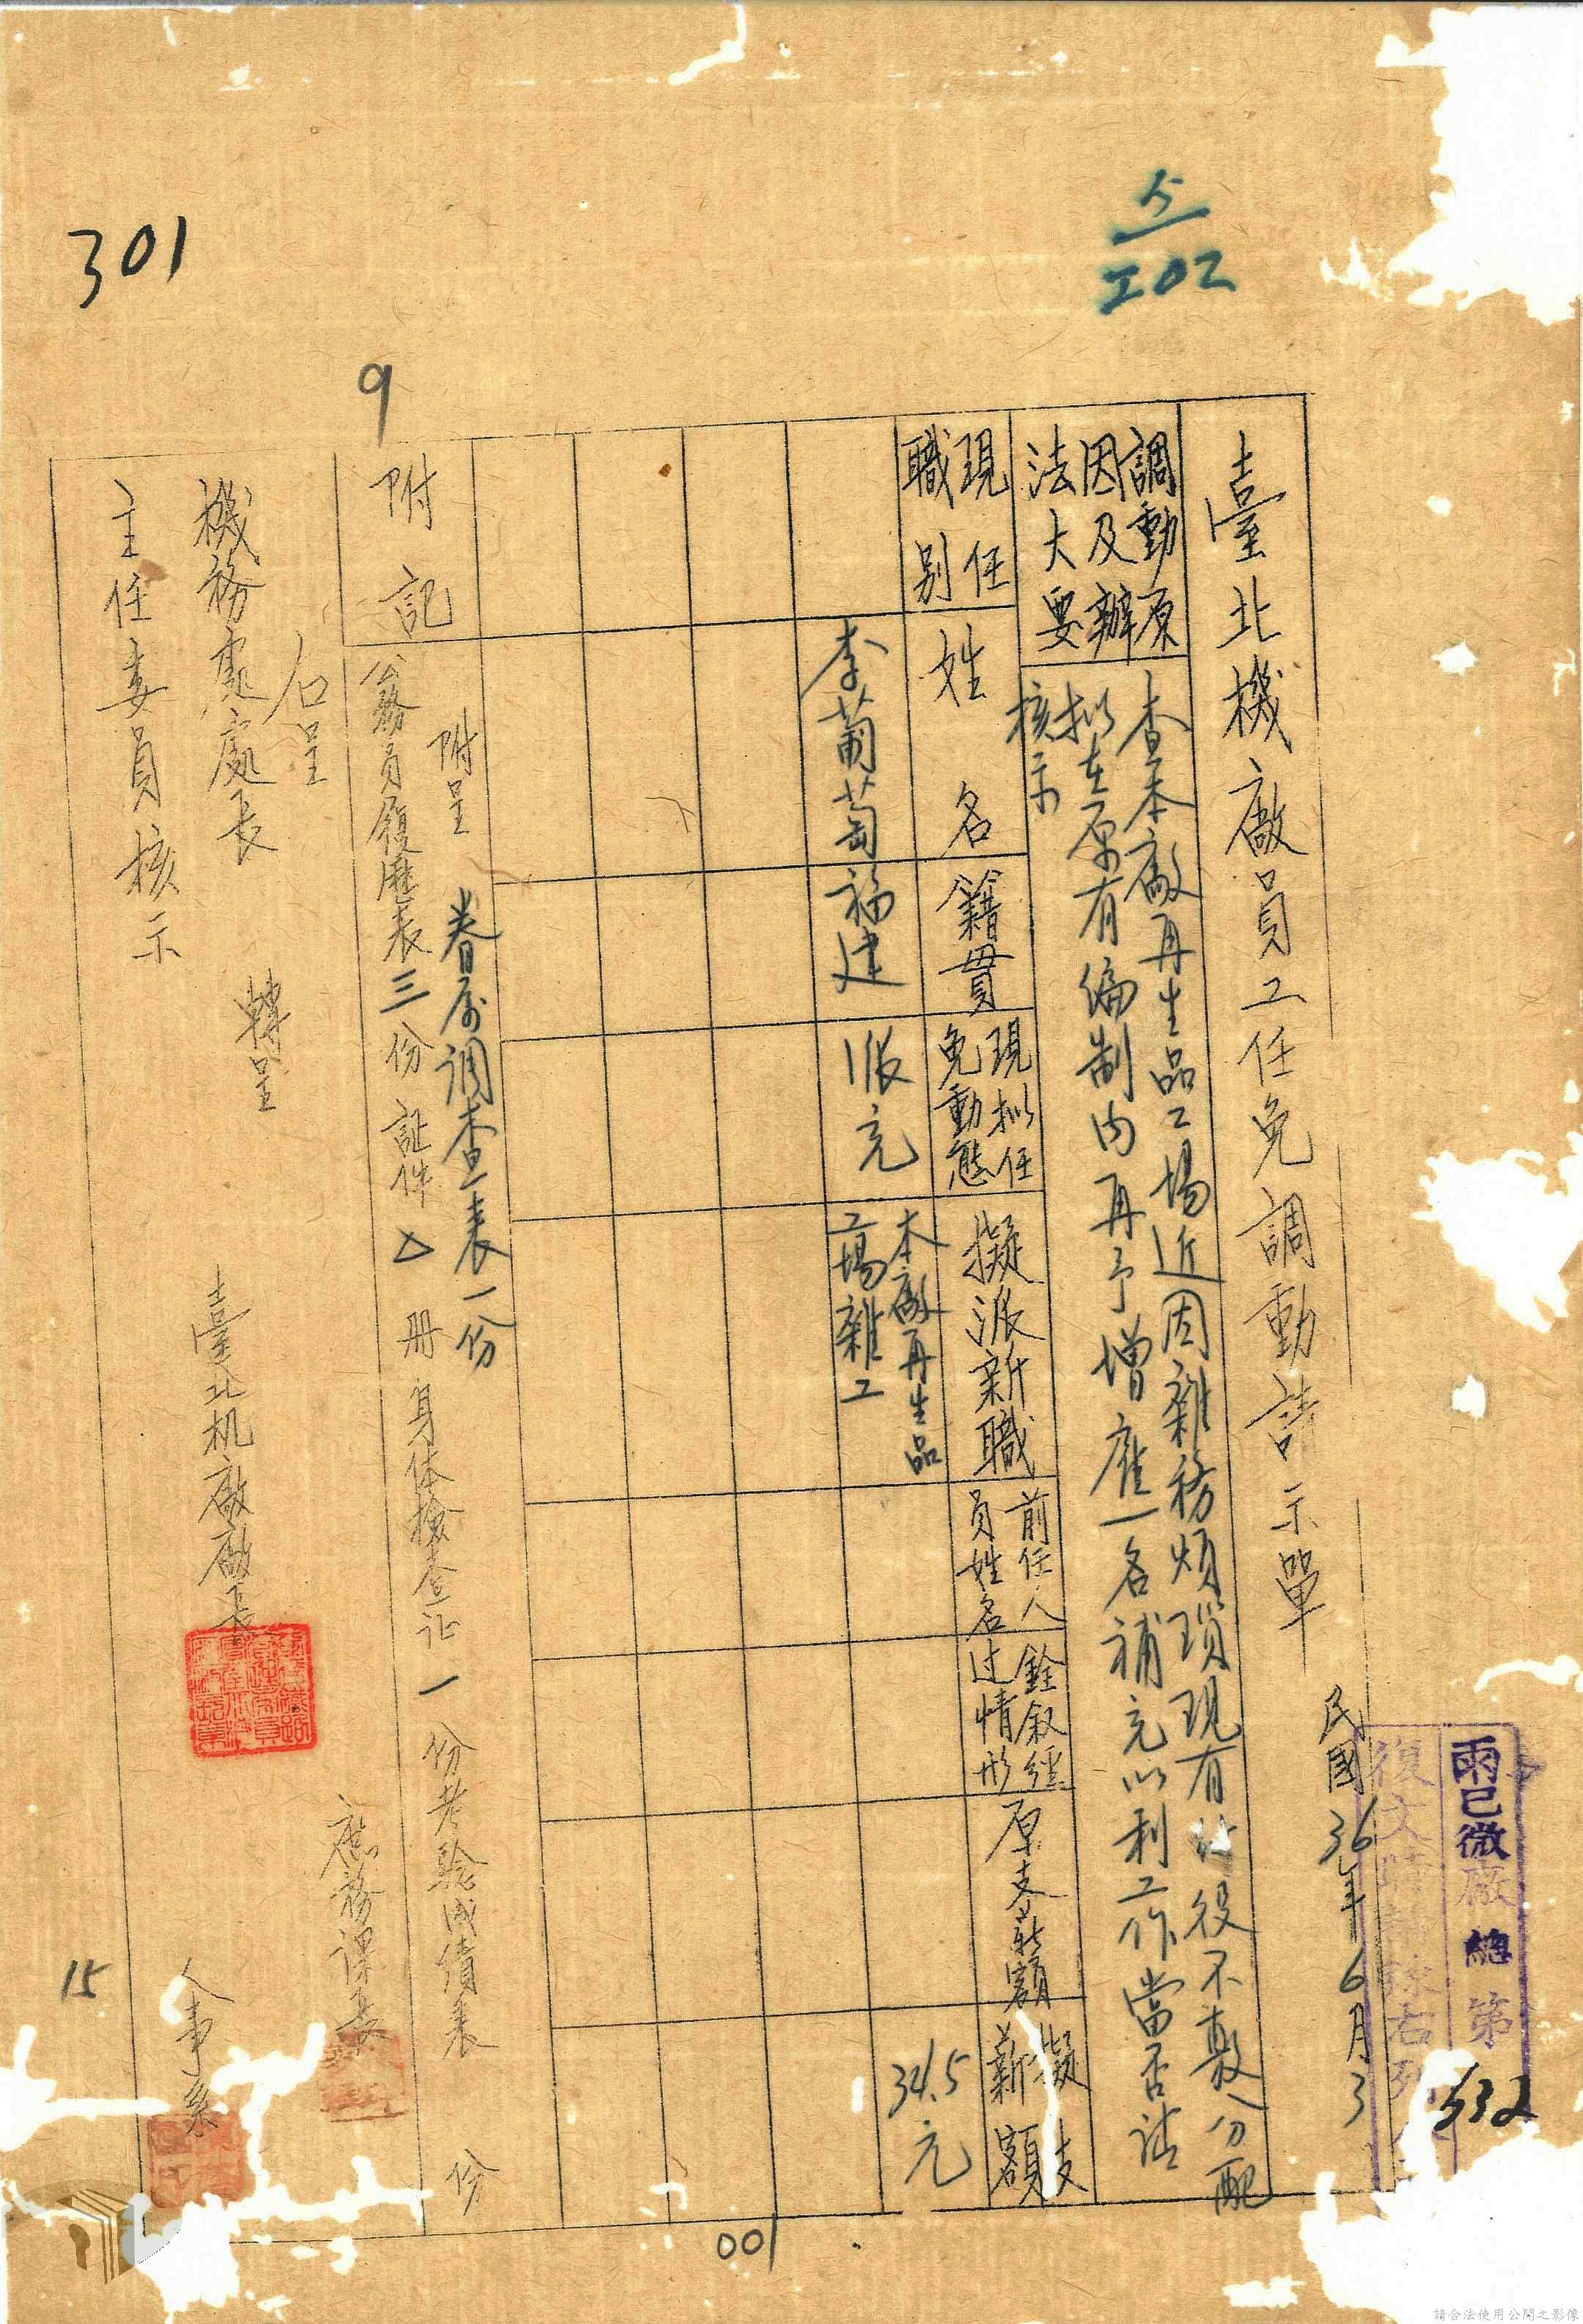 雨巳微廠總第532
民國36年6月3
臺北機廠員工任免調動請示單
調動原
因及辦
法大要
查本廠再生品工場近因雜務煩瑣現有 役不敷分配
拟在原有編制内再予增雇一名補充以利工作當否請
核示
現任
職别
姓名
籍貫
現拟任
免動態
擬派新職
前任人
員姓名
銓叙經
过情形
原支薪額
擬支
薪額
李葡萄
福建
派充
本廠再生品
工場雜工
34.5元
附記
附呈 眷屬調查表一份
公務員履歷表三份証件 册身体檢查证一份考驗成績表 份
右呈
機務處處長 轉呈
主任委員核示
臺北机廠廠長
庶務課長
人事系
5
202
301
9
15
001
請合法使用公開之影像